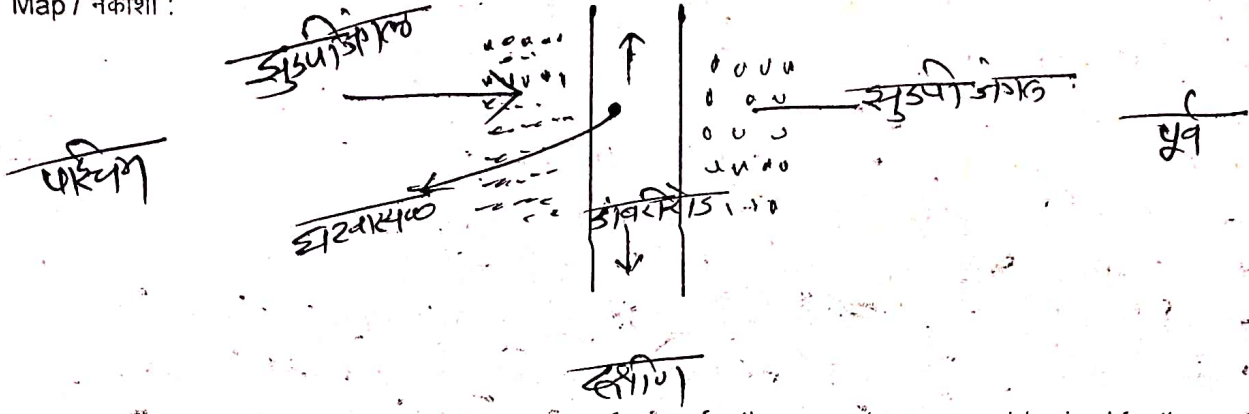 Map / नकाशा :
झुडपी जंगल
झुडपी जंगल
पूर्व
पश्चिम
घटनास्थळ
डांबरी रोड
दक्षीण